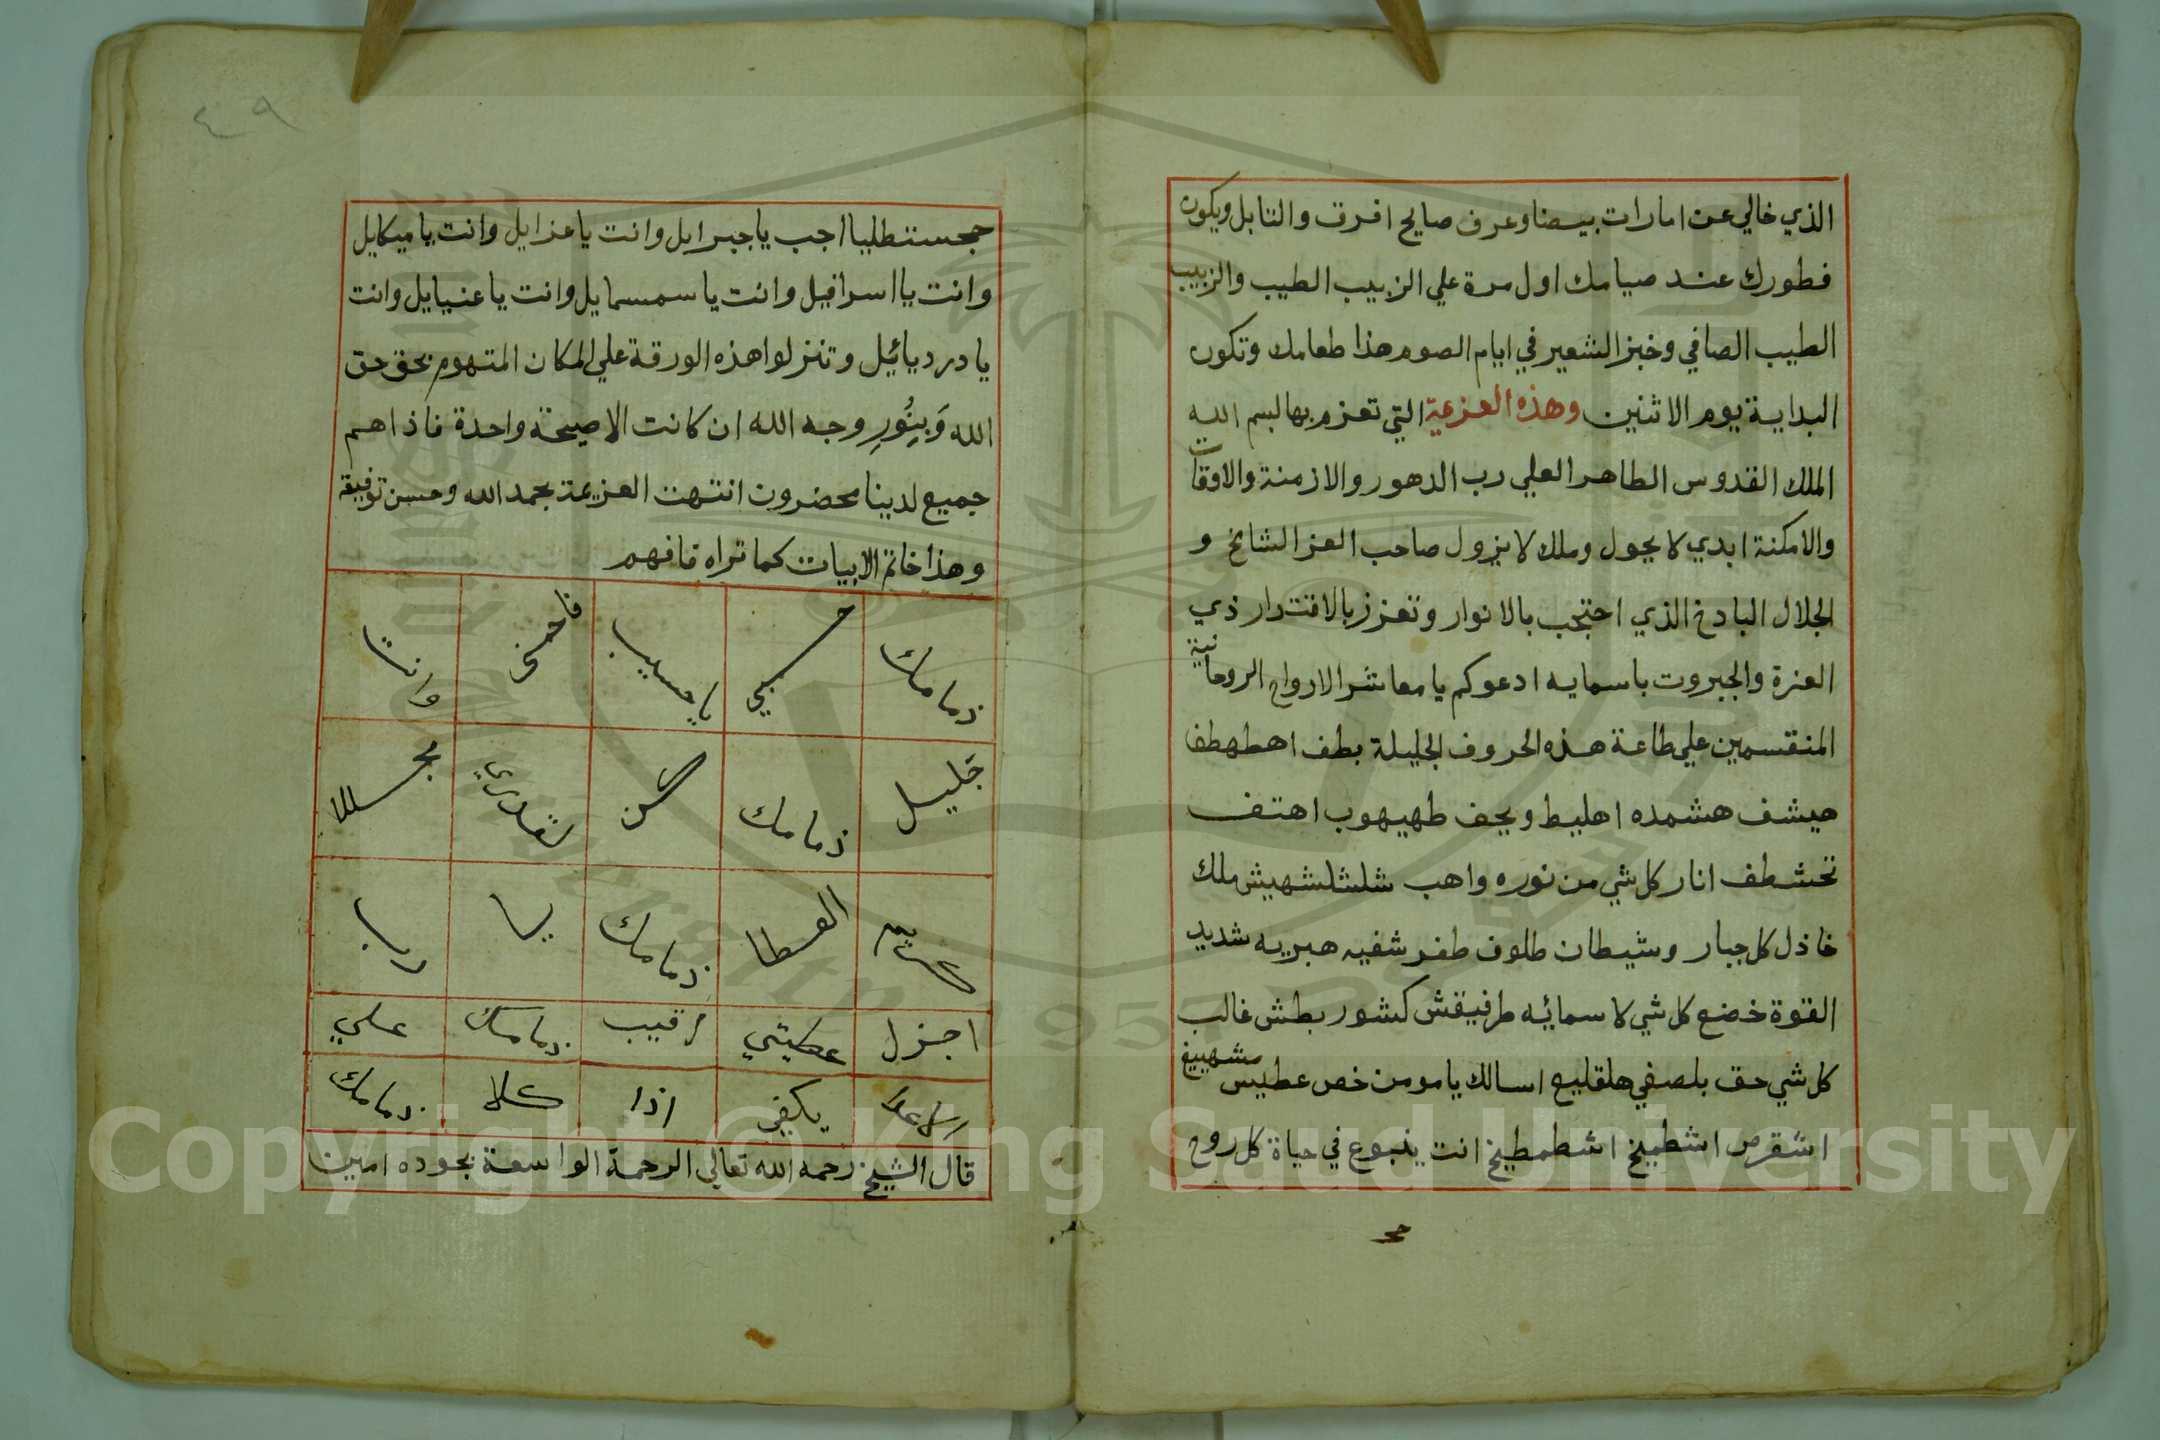 الذي خالي عن امارات بيضا وعرف صالح افرق والتابل ويكون
فطورك عند صيامك اول مرة علي الزبيب الطيب والزبيب
الطيب الصافي وخبز الشعير في ايام الصوم هذا طعامك وتكون
البداية يوم الاثنين وهذه العزيمة التي تعزم بها بسم الله
الملك القدوس الطاهر العلي رب الدهور والازمنة والاوقات
والامكنة ابدي لا يحول وملك لا يزول صاحب العز الشامخ و
الجلال الباذخ الذي احتجب بالانوار وتعزز بالاقتدار ذي
العزة والجبروت باسمايه ادعوكم يا معاشر الارواح الروحانية
المنقسمين علي طاعة هذه الحروف الجليلة بطف اهطهطف
هيشف هشمده اهليط ويجف طهيهوب اهتف
تخشطف انار كل شي من نوره واهب شلشلشهيش ملك
خاذل كل جبار وشيطان طلوف طفر شفيه هبريه شديد
القوة خضع كل شي لاسمائه طرفيقش كشور بطش غالب
كل شي حق بلصفي هلقليع اسالك يا مومن خص عطيس مشهييغ
اشقرص اشطييخ اشطمطيخ انت ينبوع في حياة كل روح
٤٩
ججستطليا اجب يا جبرايل وانت يا عزايل وانت يا ميكايل
وانت يا اسرافيل وانت يا سمسمايل وانت يا عنيايل وانت
يا درديائيل وتنزلوا هذه الورقة علي المكان المتهوم بحق حق
الله وَبِنُورِ وجه الله ان كانت الا صيحة واحدة فاذا هم
جميع لدينا محضرون انتهت العزيمة بحمد الله وحسن توفيقه
وهذا خاتم الابيات كما تراه فافهم
ذمامك حسبي يا حسيب فاحمني وانت
جليل ذمامك كن
العطا ذمامك يا رب
اجزل عطيتي رقيب ذمامك علي
يكفي اذا كلا ذمامك
قال الشيخ رحمه الله تعالي الرحمة الواسعة بجوده امين
Copyright © King Saud University